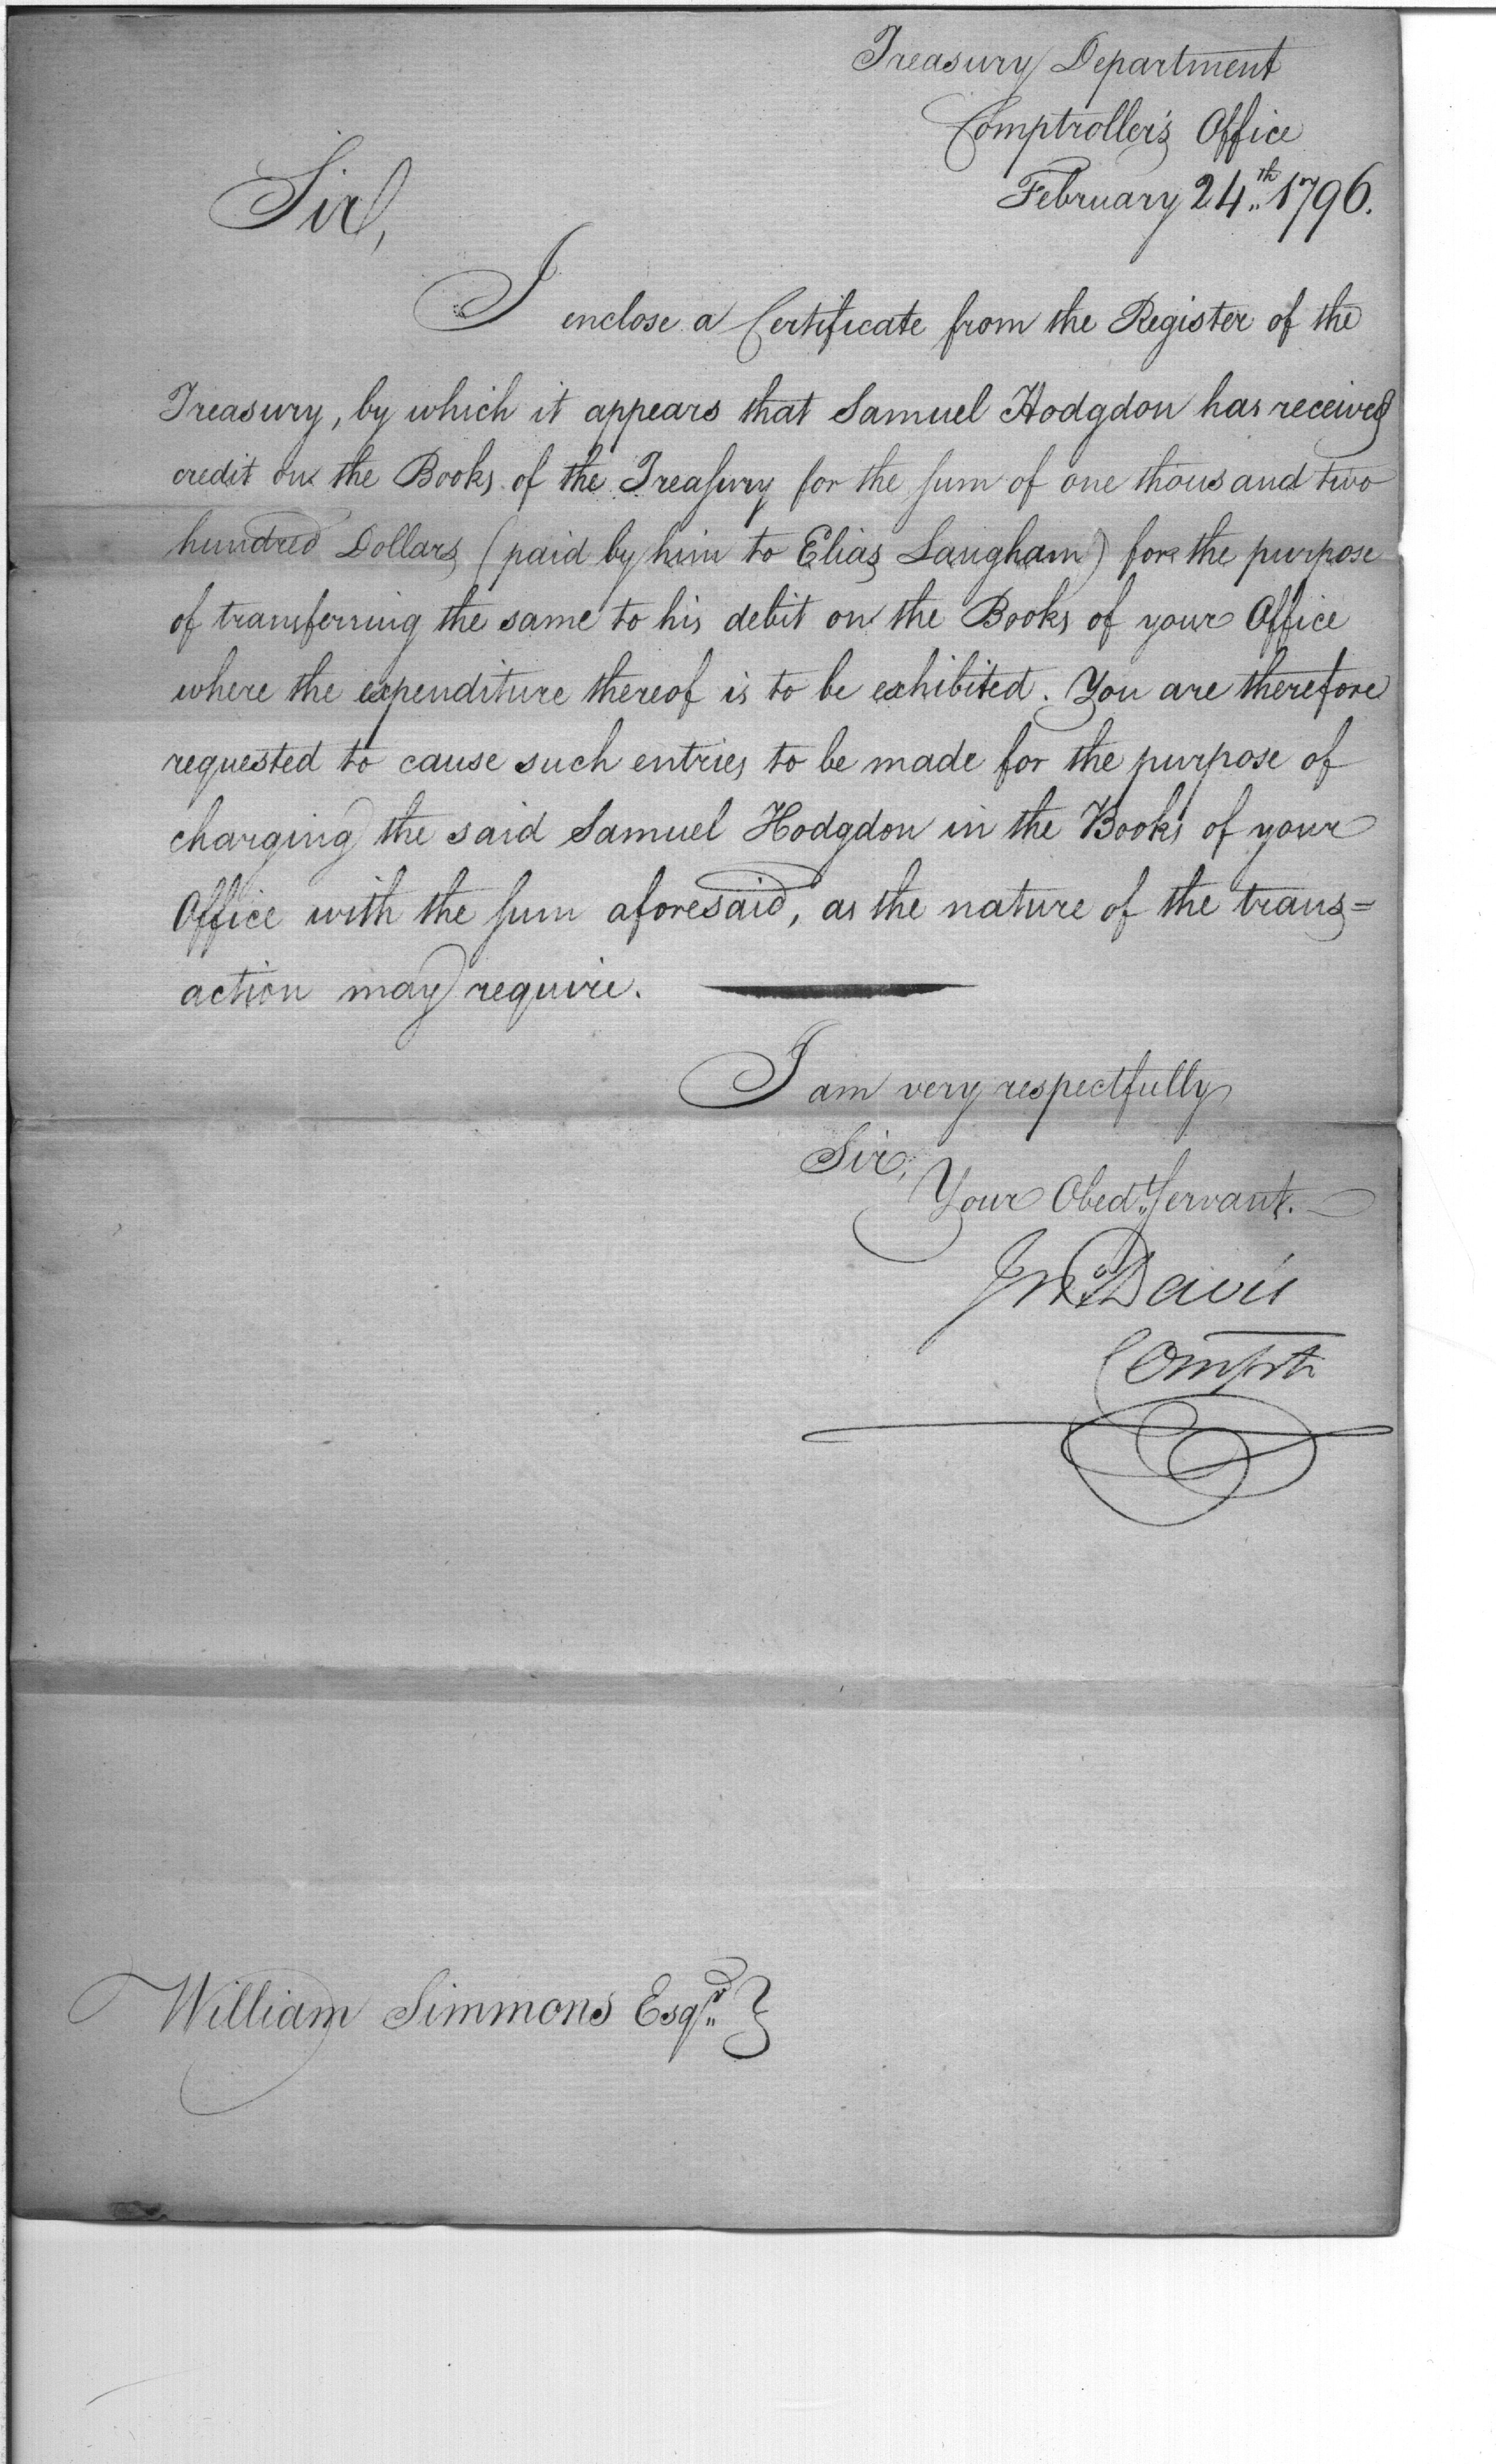 Treasury Department
Comptroller's Office
February 24th 1796.
Sir,
I enclose a Certificate from the Register of the
Treasury, by which it appears that Samuel Hodgdon has received
credit on the Books of the Treasury for the sum of one thousand two
hundred Dollars (paid by him to Elias Langham) for the purpose
of transferring the same to his debit on the Books of your Office
where the expenditure thereof is to be exhibited. You are therefore
requested to cause such entries to be made for the purpose of
charging the said Samuel Hodgdon in the Books of your
Office with the sum aforesaid, as the nature of the trans=
action may require.
I am very respectfully
Sir,
Your Obedt Servant.
Jno Davis
Comptr
William Simmons Esqr }